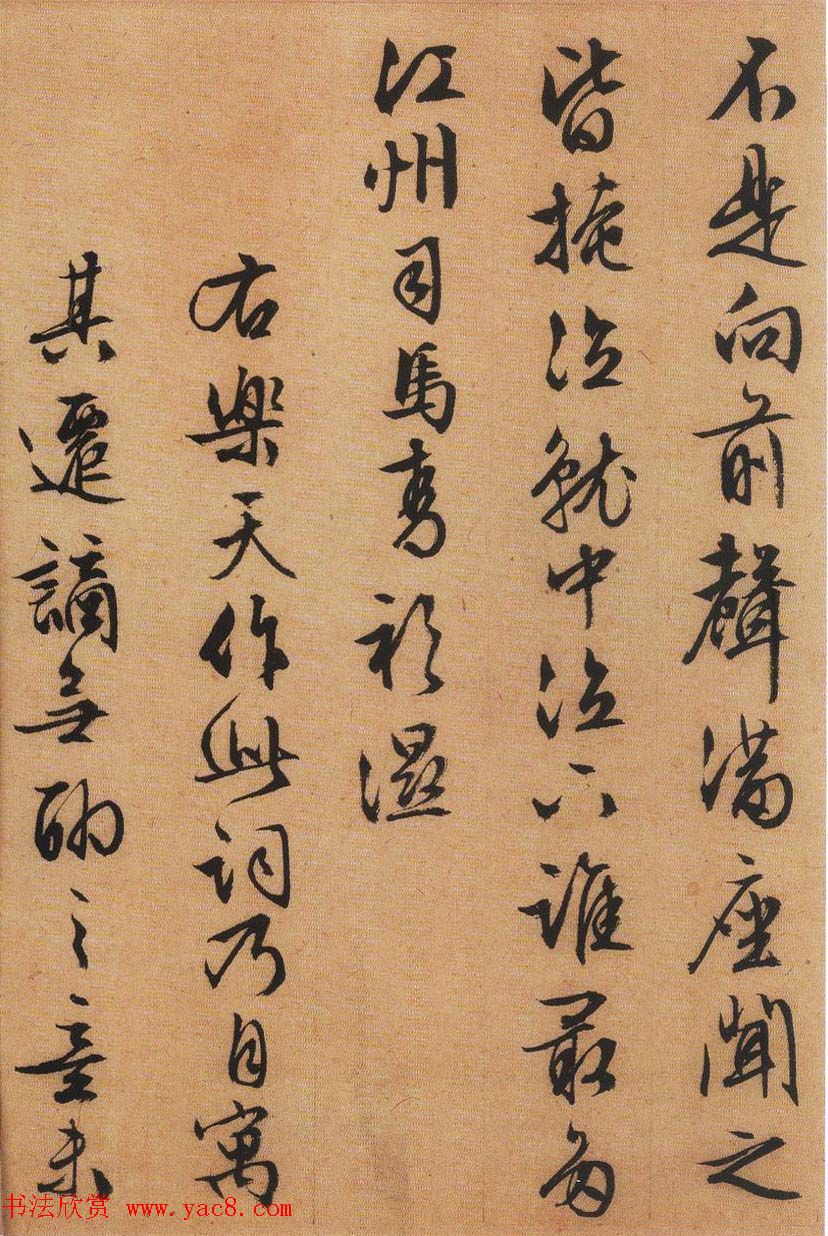 不是向前聲滿座聞之
皆掩泣就中泣下誰最多
江州司馬青衫濕
右樂天作此詞乃自寓
其遷謫無聊之意未
书法欣赏 www.yac8.com